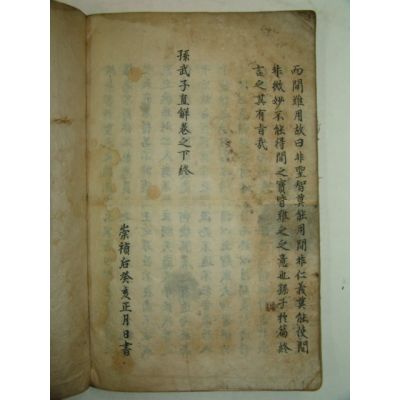 而間難用故曰非聖智莫能用間非仁義莫能使間
非微妙不能得間之實皆難之之意也孫子於篇終
言之其有旨哉
孫武子直解卷之下終
崇禎后癸亥正月日書